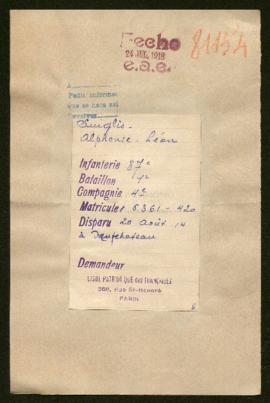 Fecho
24 JUL. 1918
e.a.e.
81154
A
Pedir informes
que se haga así
Alphonse-Léon
Infanterie 87e
Bataillon 1er
Compagnie 4e
Matricules 5361-420
Disparu 20 Août 14
à Neufchateau
Demandeur
LIGUE PATRIOTIQUE DES FRANÇAISES
368, Rue St-Honoré
PARIS